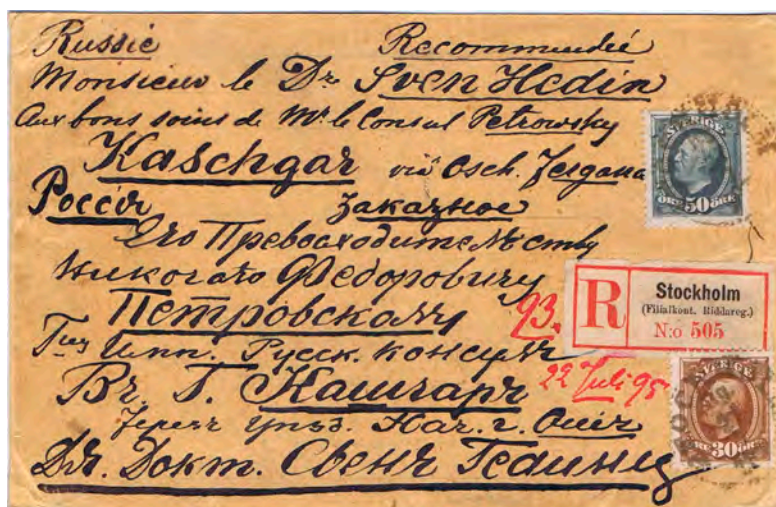 Russie Recommendée
Monsieur le Dr. Sven Hedin
Aux bons soins de Mr. le Consul Petrowsky
Kaschgar via Osch. Fergana
Россія Заказное
Его Превосходительству
Николаю Федоровичу
Петровскому
Имп. Русск. Консулъ
Въ. Г. Кашгаръ
Черезъ г. Ошъ
Дя. Докт. Свенъ Гединъ
SVERIGE
ÖRE 50 ÖRE
R
Stockholm
(Filialkont. Riddareg.)
N:o 505
93.
22 Juli 95
SVERIGE
ÖRE 30 ÖRE